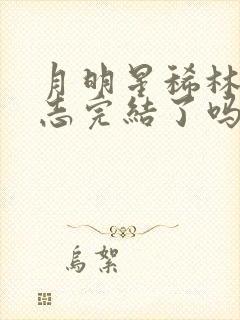 月明星稀林
志完結了吗
烏絮